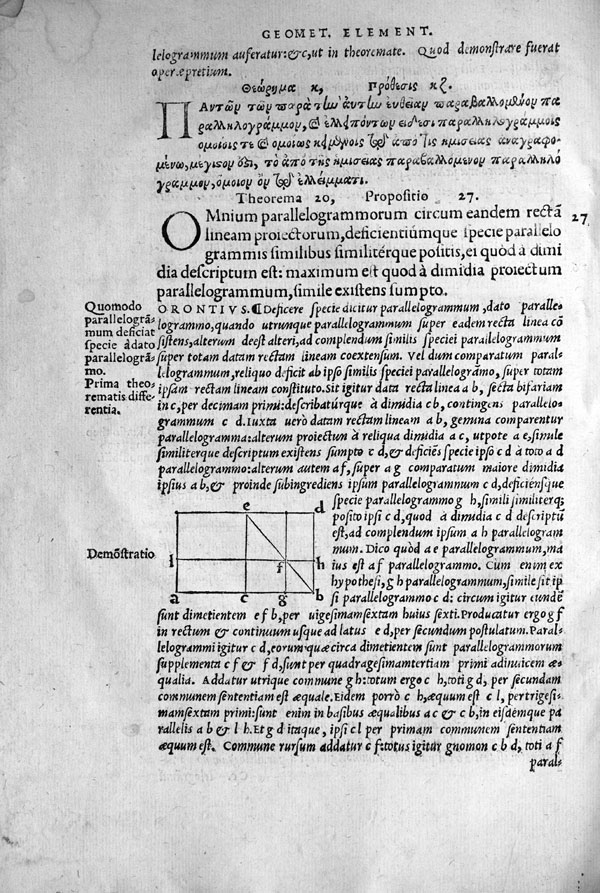 GEOMET. ELEMENT.
lelogrammum auferatur:&c, ut in theoremate. Quod demonstrare fuerat
operæpretium.
Θεώρημα κ, Πρόθεσις κζ.
ΠΑντῶν τῶν παρὰ τὴν αὐτὴν εὐθεῖαν παραβαλλομένων πα
ραλληλογράμμων, καὶ ἐλλειπόντων εἴδεσι παραλληλογράμμοις
ὁμοίοις τε καὶ ὁμοίως κειμένοις τῷ ἀπὸ τῆς ἡμισείας ἀναγραφο-
μένῳ, μέγιστον ὅτι, τὸ ἀπὸ τῆς ἡμισείας παραβαλλόμενον παραλληλό
γραμμον, ὅμοιον ὂν τῷ ἐλλείμματι.
Theorema 20, Propositio 27.
OMnium parallelogrammorum circum eandem rectā 27
lineam proiectorum, deficientiúmque specie parallelo
grammis similibus similitérque positis, ei quòd à dimi
dia descriptum est: maximum est quod à dimidia proiectum
parallelogrammum, simile existens sumpto.
Quomodo
parallelogrā-
mum deficiat
specie à dato
parallelográ-
mo.
Prima theo-
rematis diffe-
rentia.
ORONTIVS. ¶Deficere specie dicitur parallelogrammum, dato paralle-
logrammo, quando utrunque parallelogrammum super eadem recta linea cō
sistens, alterum deest alteri, ad complendum similis speciei parallelogrammum
super totam datam rectam lineam coextensum. Vel dum comparatum paral-
lelogrammum, reliquo deficit ab ipso similis speciei parallelográmo, super totam
ipsam rectam lineam constituto. Sit igitur data recta linea a b, secta bifariam
in c, per decimam primi: describatúrque à dimidia c b, contingens parallelo-
grammum c d. Iuxta uerò datam rectam lineam a b, gemina comparentur
parallelogramma: alterum proiectum à reliqua dimidia a c, utpote a e, simile
similiterque descriptum existens sumpto c d, & deficiēs specie ipso c d à toto a d
parallelogrammo: alterum autem a f, super a g comparatum maiore dimidia
ipsius a b, & proinde subingrediens ipsum parallelogrammum c d, deficiénsque
specie parallelogrammo g h, simili similiterq;
posito ipsi c d, quod à dimidia c d descriptū
est, ad complendum ipsum a h parallelogram
mum. Dico quòd a e parallelogrammum, ma
ius est a f parallelogrammo. Cum enim ex
hypothesi, g h parallelogrammum, simile sit ip
si parallelogrammo c d: circum igitur eundē
Demōstratio
e d
l f h
a c g b
sunt dimetientem e f b, per uigesimamsextam huius sexti. Producatur ergo g f
in rectum & continuum usque ad latus e d, per secundum postulatum. Paral-
lelogrammi igitur c d, eorum quæ circa dimetientem sunt parallelogrammorum
supplementa c f & f d, sunt per quadragesimamtertiam primi adinuicem æ-
qualia. Addatur utrique commune g h: totum ergo c h, toti g d, per secundam
communem sententiam est æquale. Eidem porrò c h, æquum est c l, per trigesi-
mamsextam primi: sunt enim in basibus æqualibus a c & c b, in eisdemque pa
rallelis a b & l h. Et g d itaque, ipsi c l per primam communem sententiam
æquum est. Commune rursum addatur c f: totus igitur gnomon c b d, toti a f
paral-